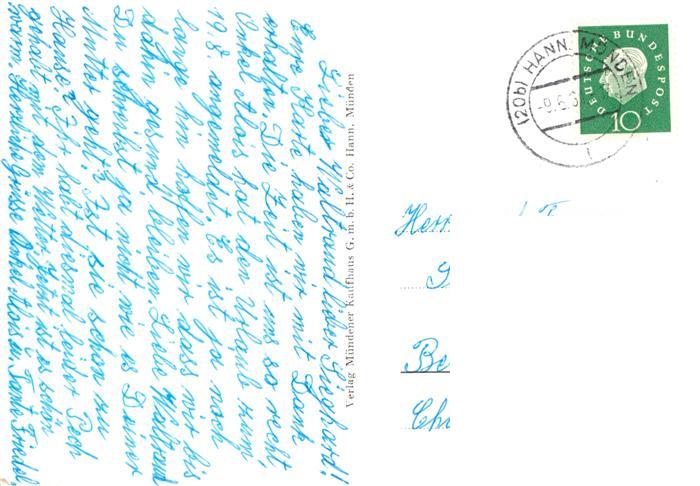 Liebe Waltraud, lieber Sieghard!
Eure Karte haben wir mit Dank
erhalten. Die Zeit ist uns so recht,
Onkel Alois hat den Urlaub zum
19.8. angemeldet. Es ist ja noch
lange hin hoffen wir dass wir bis
dahin gesund bleiben. Liebe Waltraud
Du schreibst ja nicht wie es Deiner
Mutter geht. Ist sie schon zu
Hause? Ihr habt diesmal leider Pech
gehabt mit dem Wetter jetzt ist es schön
warm. Herzliche Grüsse Onkel Alois u. Tante Friedel.
Verlag Mündener Kaufhaus G.m.b.H. & Co. Hann. Münden
(20b) HANN. MÜNDEN
-9.6.
DEUTSCHE BUNDESPOST
10
Herr
Be